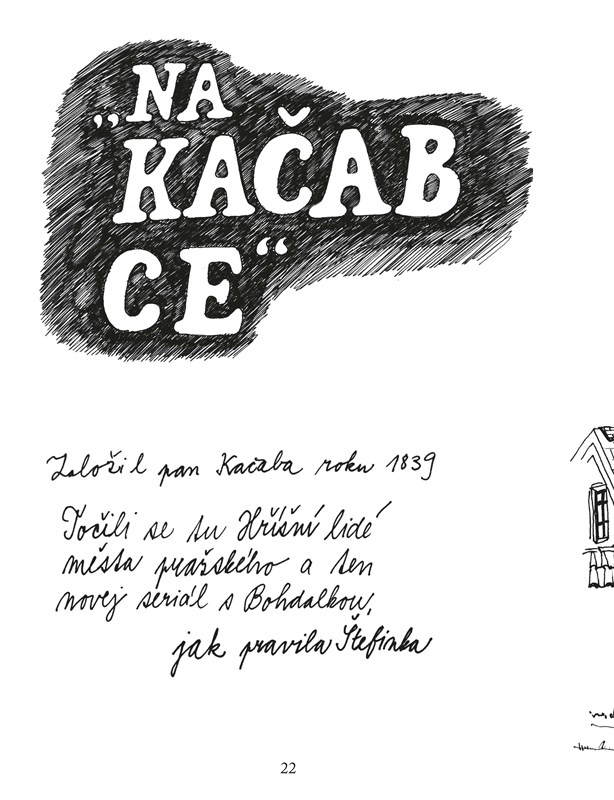 „NA
KAČAB
CE“
Založil pan Kačaba roku 1839
Točili se tu Hříšní lidé
města pražského a ten
novej seriál s Bohdalkou,
jak pravila Štefinka
22